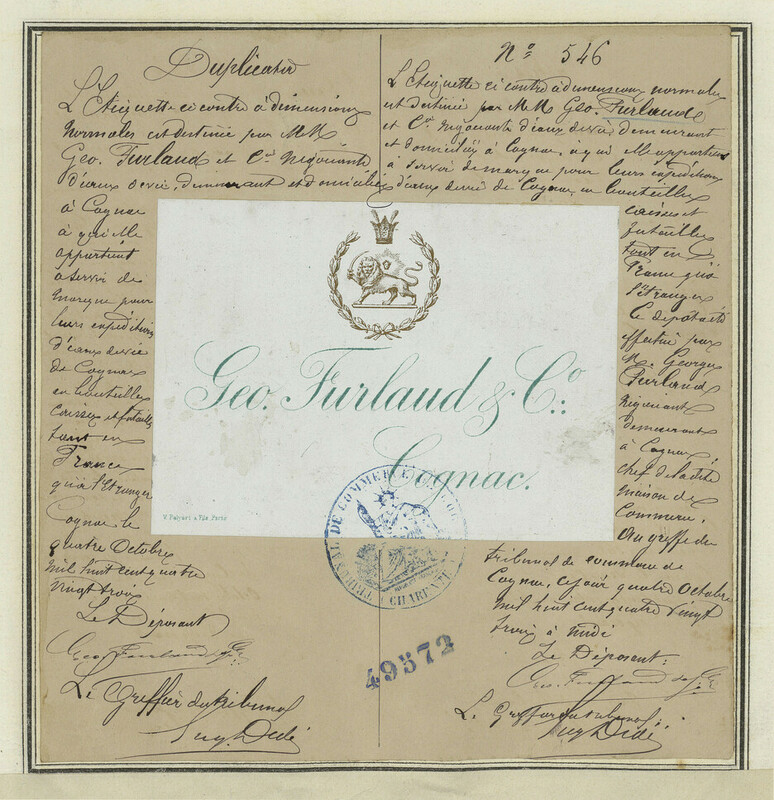 Duplicata
L'Etiquette ci contre à dimensions
normales est destinée par MM
Geo. Furlaud et Cie Négociants
d'eaux de vie, demeurant et domiciliés
à Cognac
à qui elle
appartient
à servir de
marque pour
leurs expéditions
d'eaux de vie
de Cognac
en bouteilles
caisses et futailles
tant en
France
qu'à l'Etranger
Cognac le
quatre Octobre
mil huit cent quatre
vingt trois
Le Déposant
Geo. Furlaud & Cie
Le Greffier du tribunal
No 546
L'Etiquette ci contre à dimensions normales
est destinée par MM Geo. Furlaud
et Cie Négociants d'eaux de vie demeurant
et domiciliés à Cognac, à qui elle appartient
à servir de marque pour leurs expéditions
d'eaux de vie de Cognac en bouteilles
caisses et
futailles
tant en
France qu'à
l'Etranger
Ce dépôt a été
effectué par
M. Georges
Furlaud
Négociant
demeurant
à Cognac,
chef de la dite
maison de
Commerce,
au greffe du
tribunal de commerce de
Cognac, ce jour quatre Octobre
mil huit cent quatre vingt
trois à midi
Le Déposant:
Geo. Furlaud & Cie
Le Greffier du tribunal:
Geo. Furlaud & Co.:
Cognac.
V. Palyart à Fils, Paris
TRIBUNAL DE COMMERCE
CHARENTE
49572